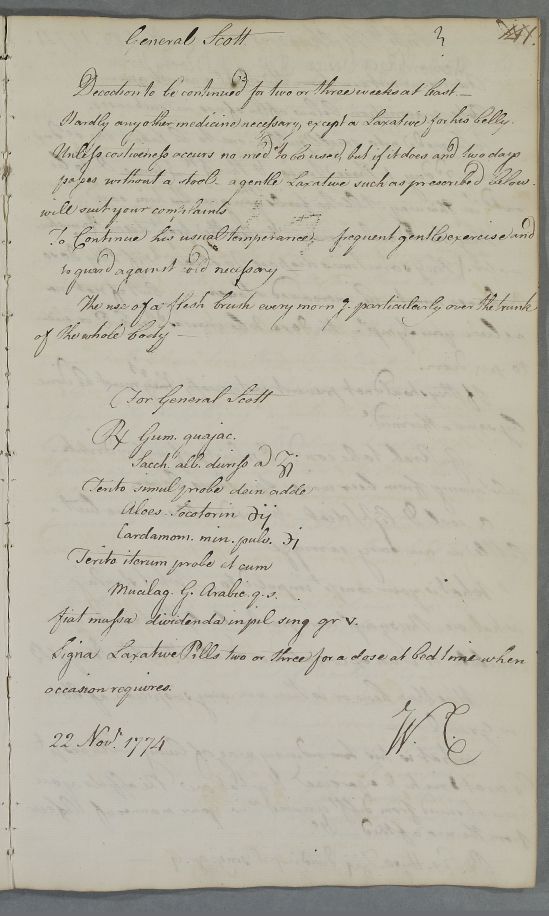 General Scott 3 XII.
Decoction to be continued for two or three weeks at least —
Hardly any other medicine necessary, except a Laxative for his belly.
Unless costiveness occurs no med: to be used, but if it does and two days
passes without a stool a gentle Laxative such as prescribed below
will suit your complaints
To Continue his usual temperance, frequent gentle exercise and
to guard against cold necessary
The use of a flesh brush every morng. particularly over the trunk
of the whole body —
For General Scott
℞ Gum. guajac.
Sacch. alb. duriss a ʒj
Terito simul probe dein adde
Aloes Socotorin ℈ij
Cardamom. min. pulv. ℈j
Terito iterum probe et cum
Mucilag. G. Arabic. q.s.
fiat massa dividenda in pil sing gr v.
Signa Laxative Pills two or three for a dose at bed time when
occasion requires.
22 Novr. 1774 W. C.